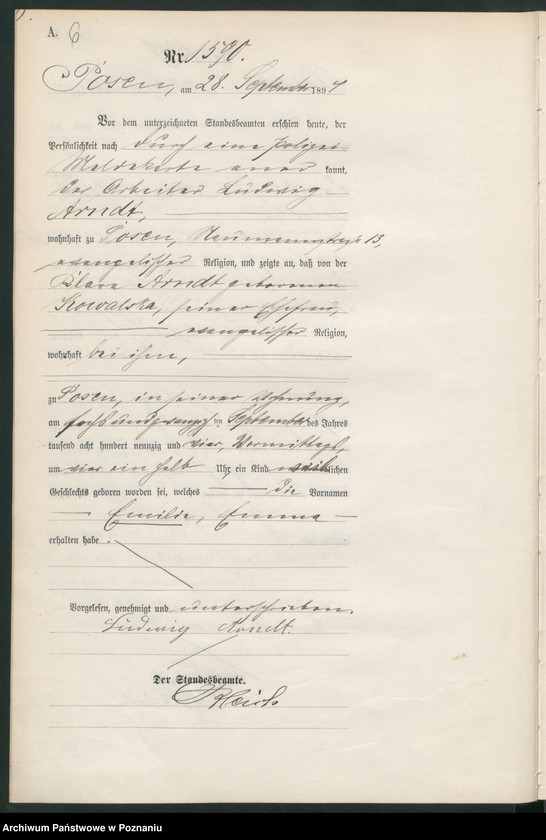 A. 6
Nr. 1590.
Posen, am 28. September 1894
Vor dem unterzeichneten Standesbeamten erschien heute, der
Persönlichkeit nach durch eine Polizei
Meldekarte aner kannt,
der Arbeiter Ludwig
Arndt,
wohnhaft zu Posen, Naumannstraße 13,
evangelischer Religion, und zeigte an, daß von der
Clara Arndt geborenen
Kowalska, seiner Ehefrau,
evangelischer Religion,
wohnhaft bei ihm,
zu Posen, in seiner Wohnung,
am sechsundzwanzig ten September des Jahres
tausend acht hundert neunzig und vier, Vormittags,
um vier ein halb Uhr ein Kind weiblichen
Geschlechts geboren worden sei, welches die Vornamen
Emilie, Emma
erhalten habe.
Vorgelesen, genehmigt und unterschrieben.
Ludwig Arndt.
Der Standesbeamte.
Archiwum Państwowe w Poznaniu